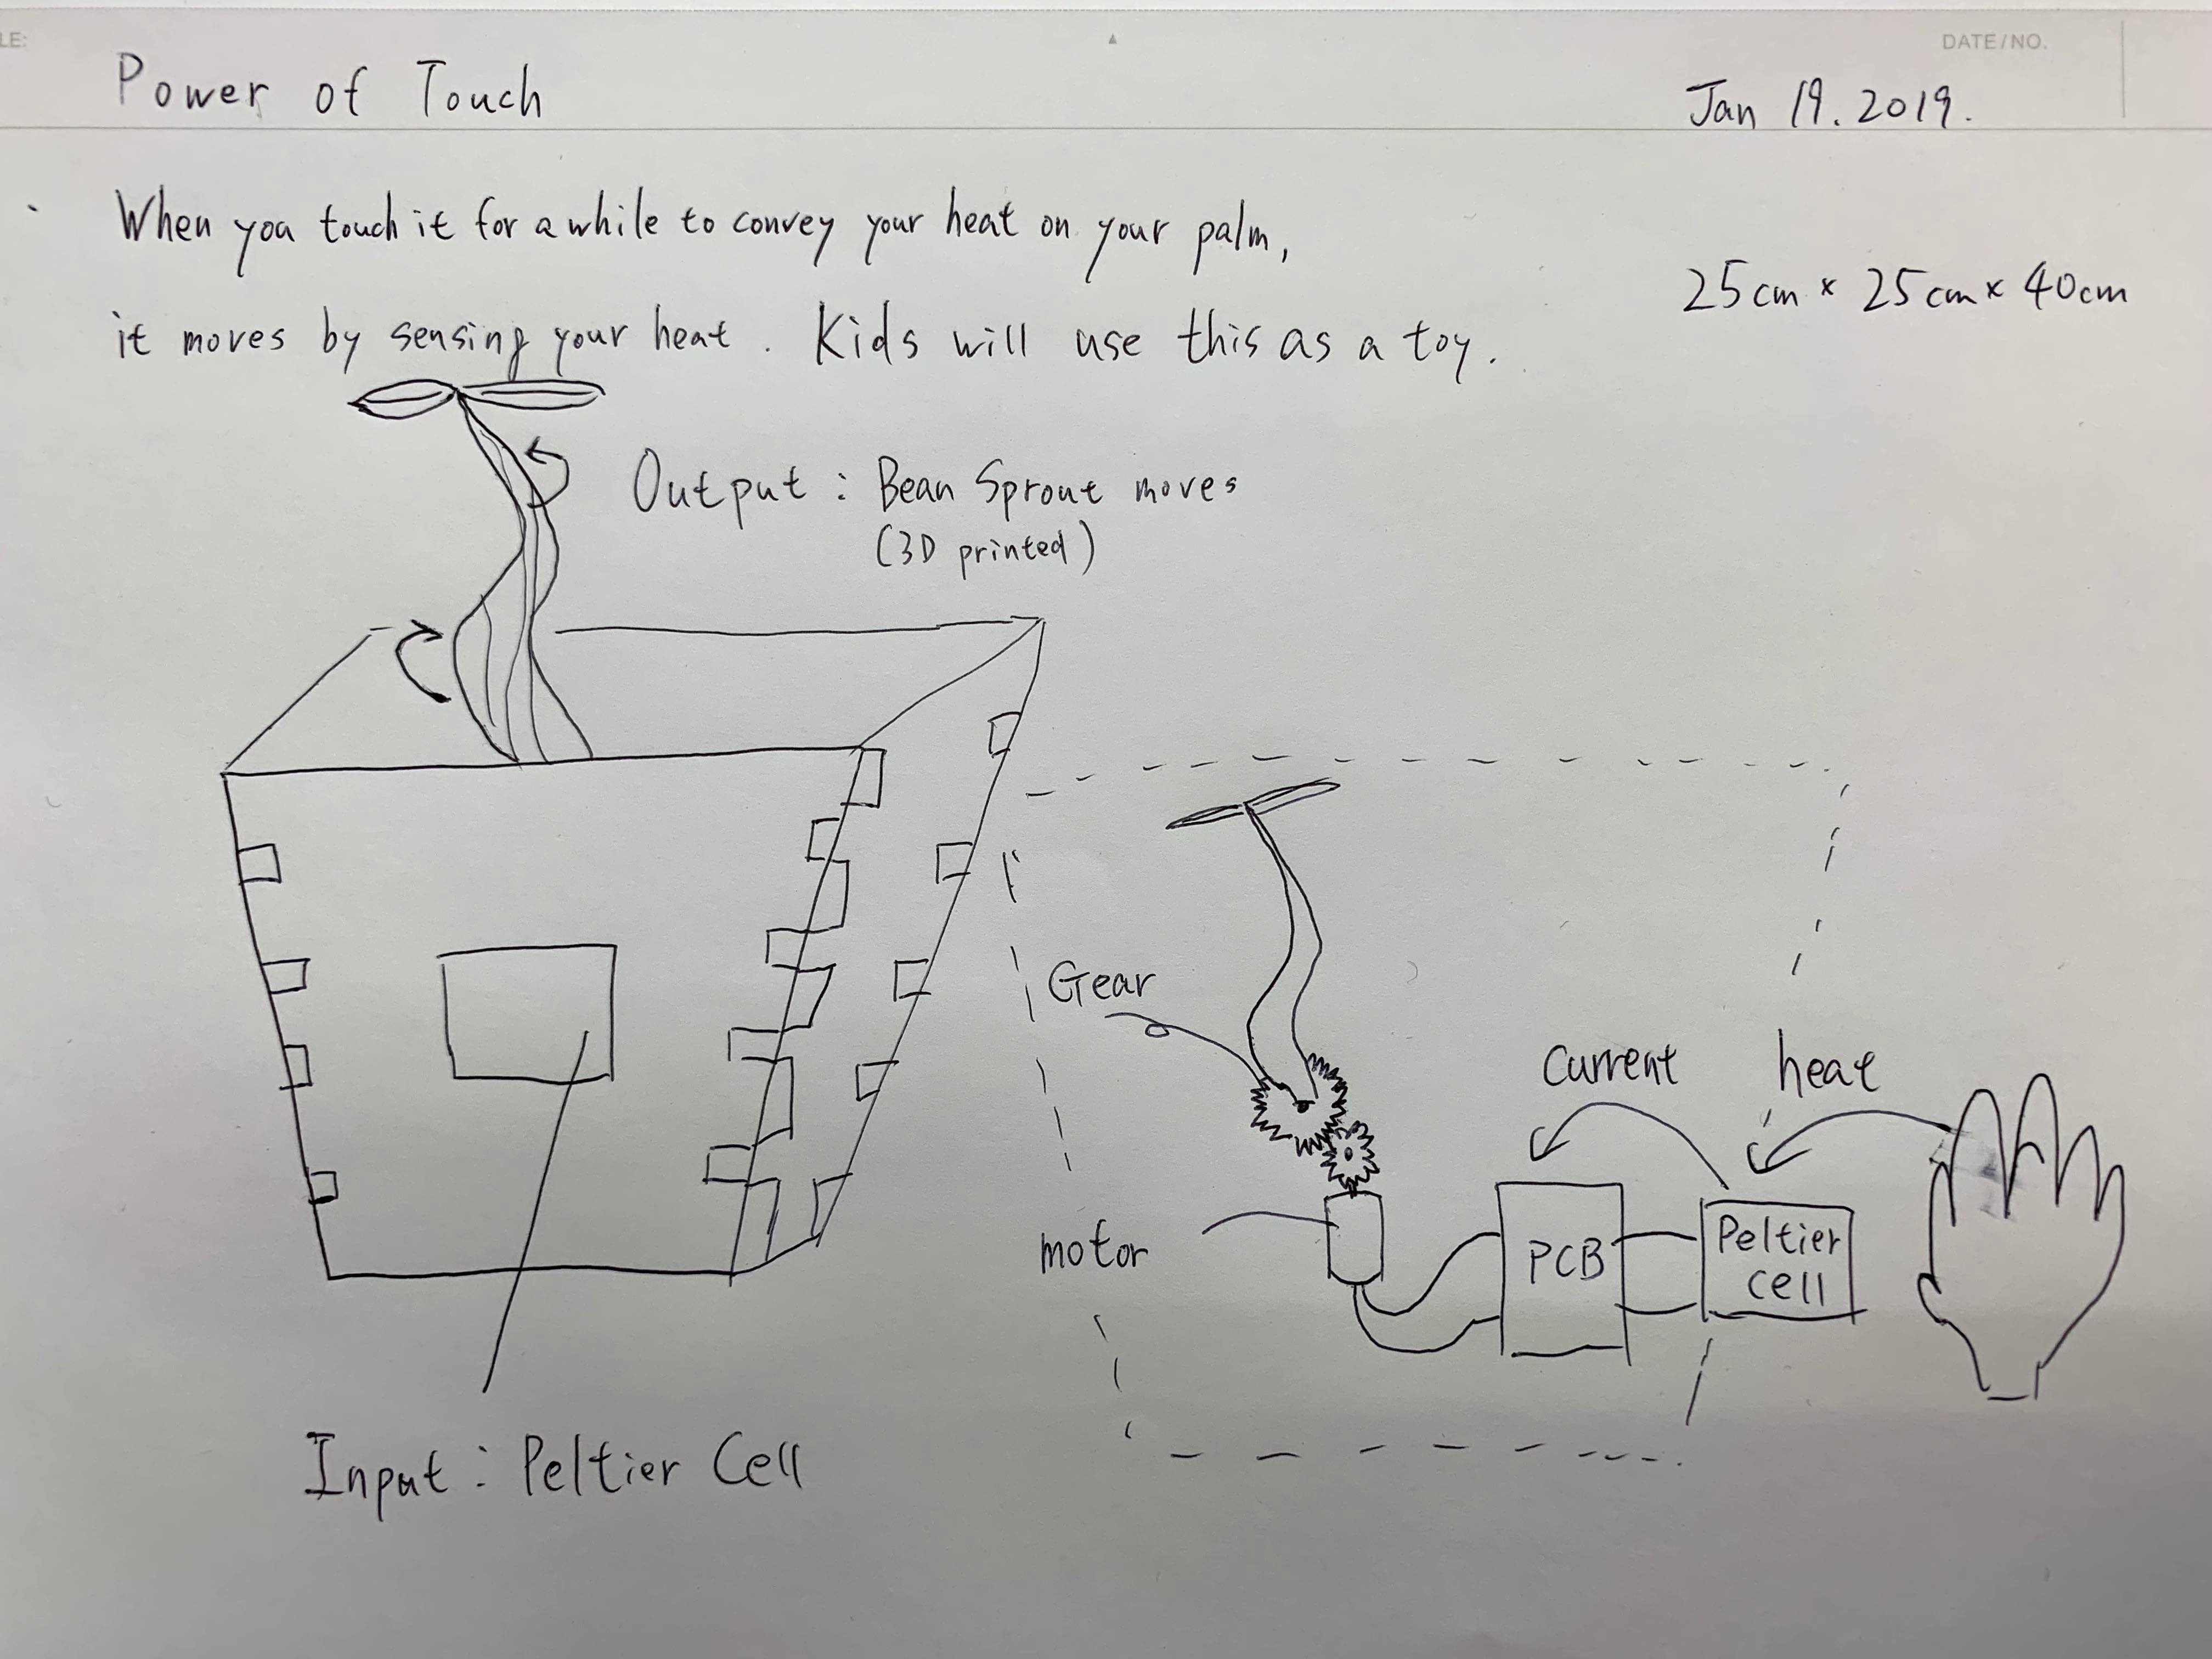 LE:
DATE/NO.
Power of Touch
Jan 19. 2019.
When you touch it for a while to convey your heat on your palm,
it moves by sensing your heat. Kids will use this as a toy.
25cm x 25cm x 40cm
Output : Bean Sprout moves
(3D printed)
Gear
Current
heat
motor
PCB
Peltier
cell
Input : Peltier Cell